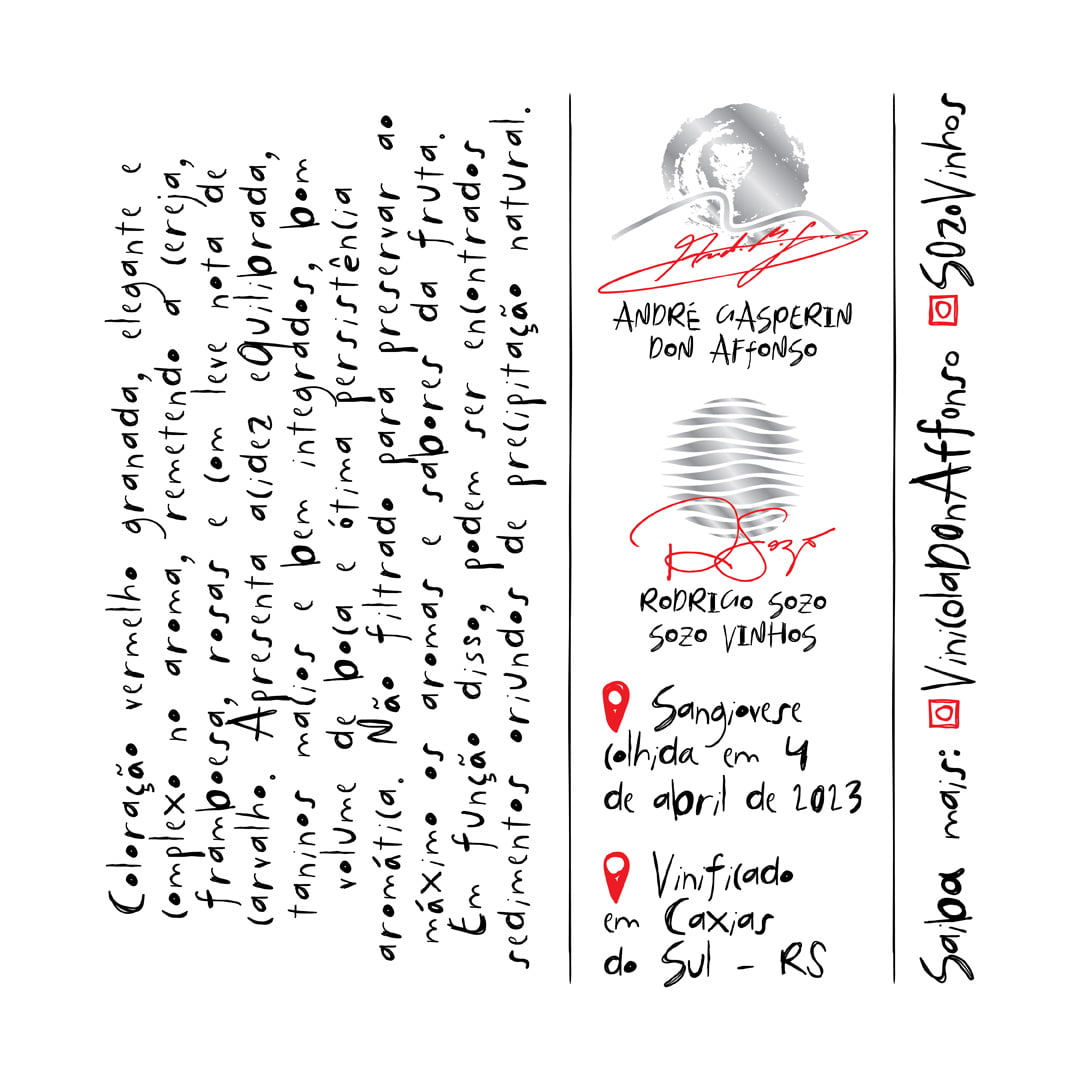 Coloração vermelho granada, elegante e
complexo no aroma, remetendo a cereja,
framboesa, rosas e com leve nota de
carvalho. Apresenta acidez equilibrada,
taninos macios e bem integrados, bom
volume de boca e ótima persistência
aromática. Não filtrado para preservar ao
máximo os aromas e sabores da fruta.
Em função disso, podem ser encontrados
sedimentos oriundos de precipitação natural.
ANDRÉ GASPERIN
DON AFFONSO
Sozo
RODRIGO SOZO
SOZO VINHOS
Sangiovese
colhida em 4
de abril de 2023
Vinificado
em Caxias
do Sul - RS
Saiba mais: VinicolaDOnAffonso SOzoVinhos